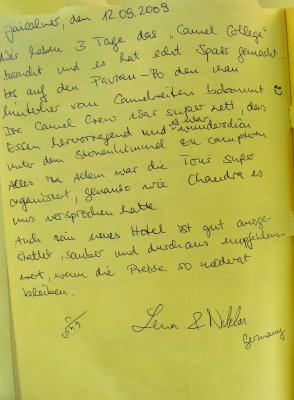 Jaisalmer, den 12.09.2009
Wir haben 3 Tage das "Camel College"
besucht und es hat echt Spass gemacht
bis auf den Pavian-Po den man
hinterher vom Camelreiten bekommt.
Die Camel Crew war super nett, das
Essen hervorragend und es war wunderschön
unter dem Sternenhimmel zu campieren
Alles in allem war die Tour super
organisiert, genauso wie Chandra es
uns versprochen hatte.
Auch sein neues Hotel ist gut ausge-
stattet, sauber und durchaus empfehlens-
wert, wenn die Preise so moderat
bleiben.
Lena & Niklas
Germany